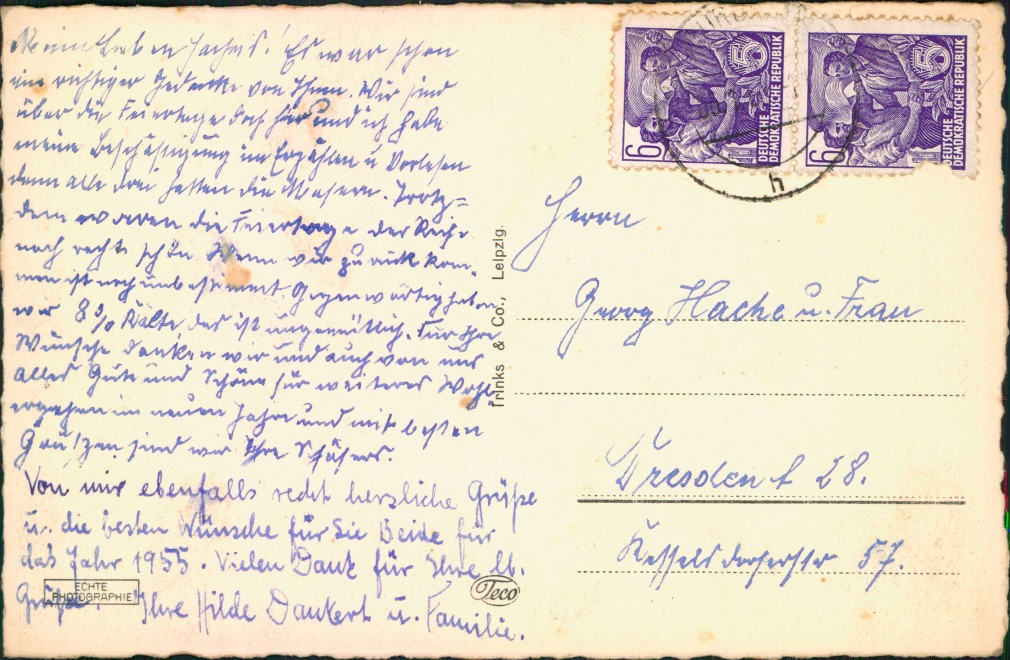 Meine lieben Haches! Es war schon
ein richtiger Gedanke von Ihnen. Wir sind
über die Feiertage doch hier und ich habe
meine Beschäftigung im Erzählen u Vorlesen
denn alle drei hatten die Masern. Trotz=
dem waren die Feiertage der Reihe
nach recht schön. Wenn wir zurück kom-
men ist noch unbestimmt. Gegenwärtig haben
wir 8% Kälte das ist ungemütlich. Für Ihre
Wünsche danken wir und auch von uns
alles Gute und Schöne für weiteres Wohl-
ergehen im neuen Jahre und mit besten
Grüßen sind wir Ihre Schäfers.
Von mir ebenfalls recht herzliche Grüße
u. die besten Wünsche für Sie Beide für
das Jahr 1955. Vielen Dank für Ihre lb.
Grüße. Ihre Hilde Dankert u. Familie.
ECHTE
PHOTOGRAPHIE
Trinks & Co., Leipzig.
Teco
6
DEUTSCHE
DEMOKRATISCHE REPUBLIK
6
DEUTSCHE
DEMOKRATISCHE REPUBLIK
h
Herrn
Georg Hache u. Frau
Dresden A 28.
Kesselsdorferstr 57.